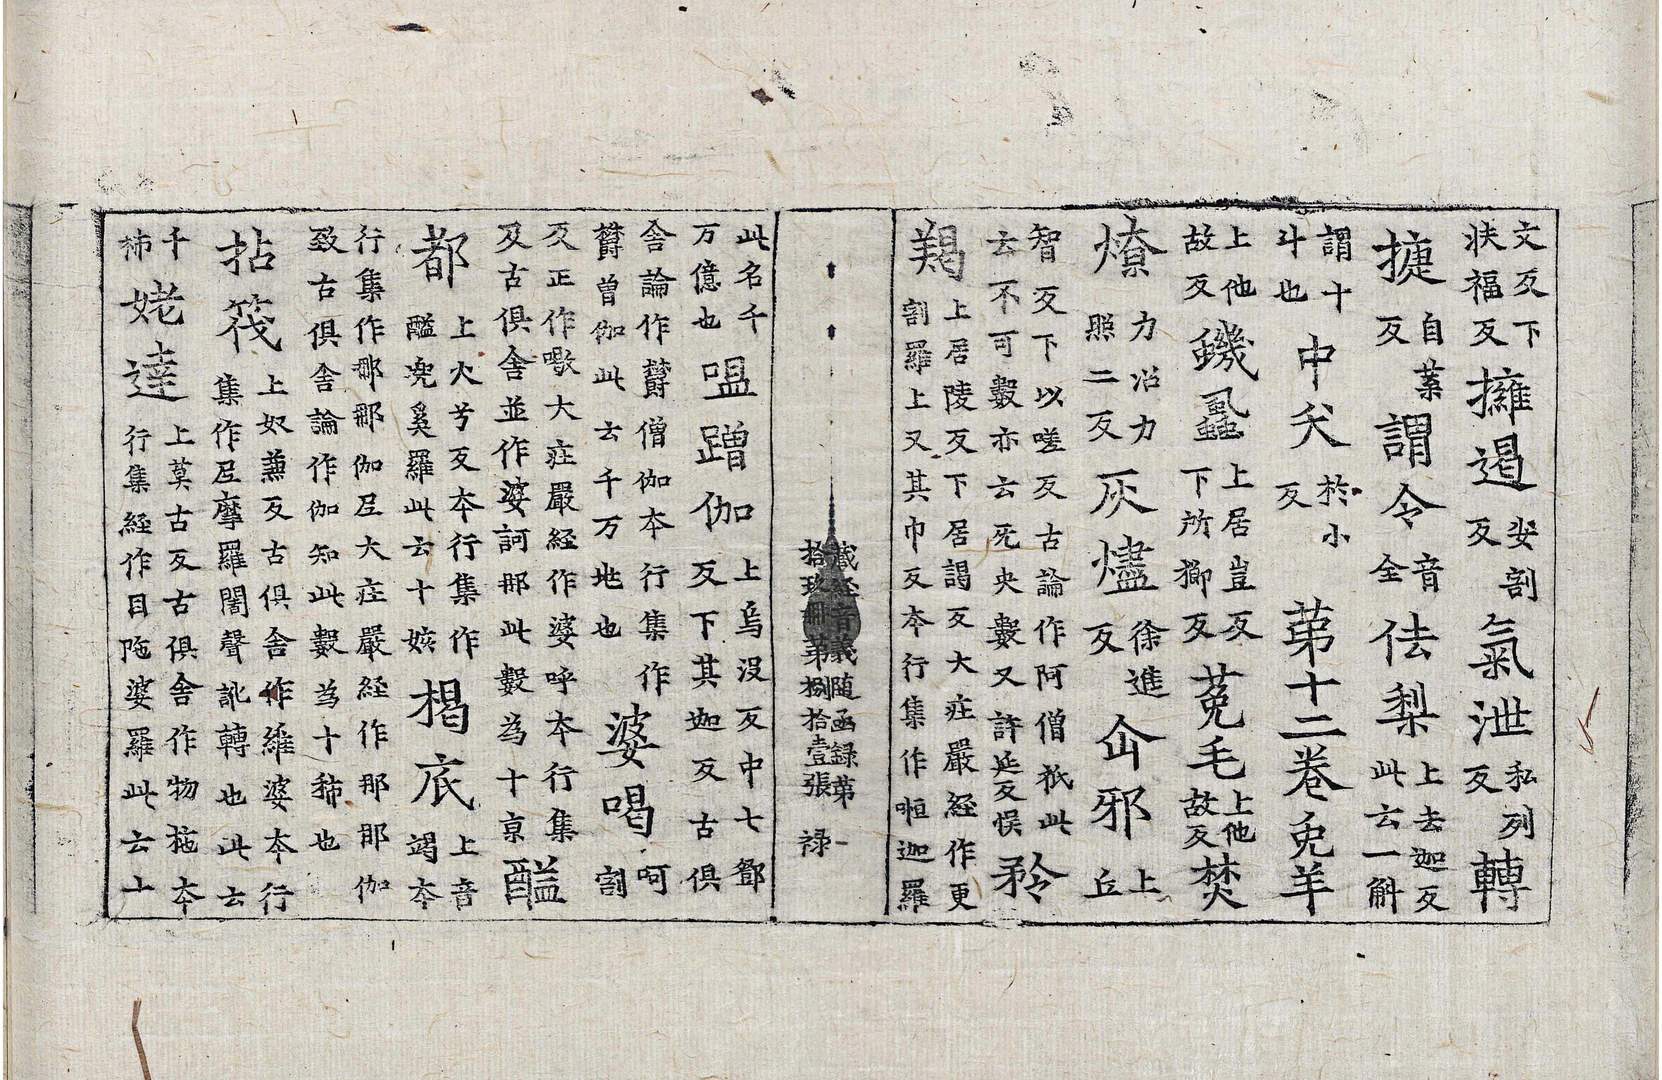 文反下擁遏安割氣泄私列轉
扶福反反反
㨗自葉謂令音佉梨上去迦反
反全此云一斛
謂十中夭於小第十二卷兔羊
斗也反
上他蟣蝨上居豈反菟毛上他焚
故反下所擳反故反
燎力沼力灰燼徐進仚邪上
照二反反丘
智反下以嗟反古論作阿僧祇此矜
云不可數亦云死央數又許延反悮
羯上居陵反下居謁反大莊嚴經作更
割羅上又其巾反夲行集作㘅迦羅
藏經音義隨函録第一
拾玖冊第捌拾壹張祿
此名千嗢蹭伽上烏沒反中七鄧
万億也反下其迦反古俱
舍論作䰝僧伽本行集作婆喝呵
䰝曽伽此云千万地也割
反正作㗛大莊嚴經作婆呼夲行集醯
反古俱舍並作婆訶那此數為十京
都上火兮反夲行集作揭底上音
醯兠奚羅此云十姟竭夲
行集作那那伽𡰱大莊嚴経作那那伽
致古俱舍論作伽知此數為十秭也
拈筏上奴兼反古俱舍作維婆夲行
集作𡰱摩羅闍聲訛轉也此云
千姥達上莫古反古俱舍作物拖夲
秭行集経作目陁婆羅此云十